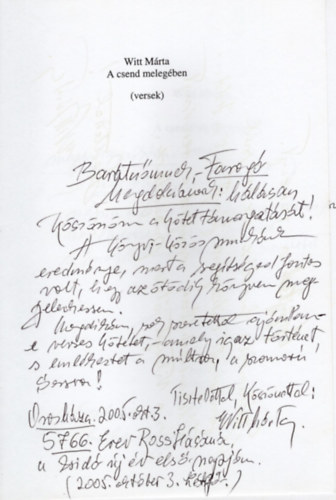 Witt Márta
A csend melegében
(versek)
Barátnőmnek, Faragó
Magdolnának: hálásan
köszönöm a kötet támogatását!
A könyv közös munkánk
eredménye, mert a segítséged fontos
volt, hogy az ötödik könyvem meg-
jelenhessen.
Magdikám, sok szeretettel ajánlom
e verses kötetet, amely igaz történet
s emlékeztet a múltra, a
Tisztelettel, köszönettel:
Orosháza, 2005. okt. 3. Witt Márta
5766. Erev Ros Hásáná,
a zsidó új év első napján.
(2005. október 3.